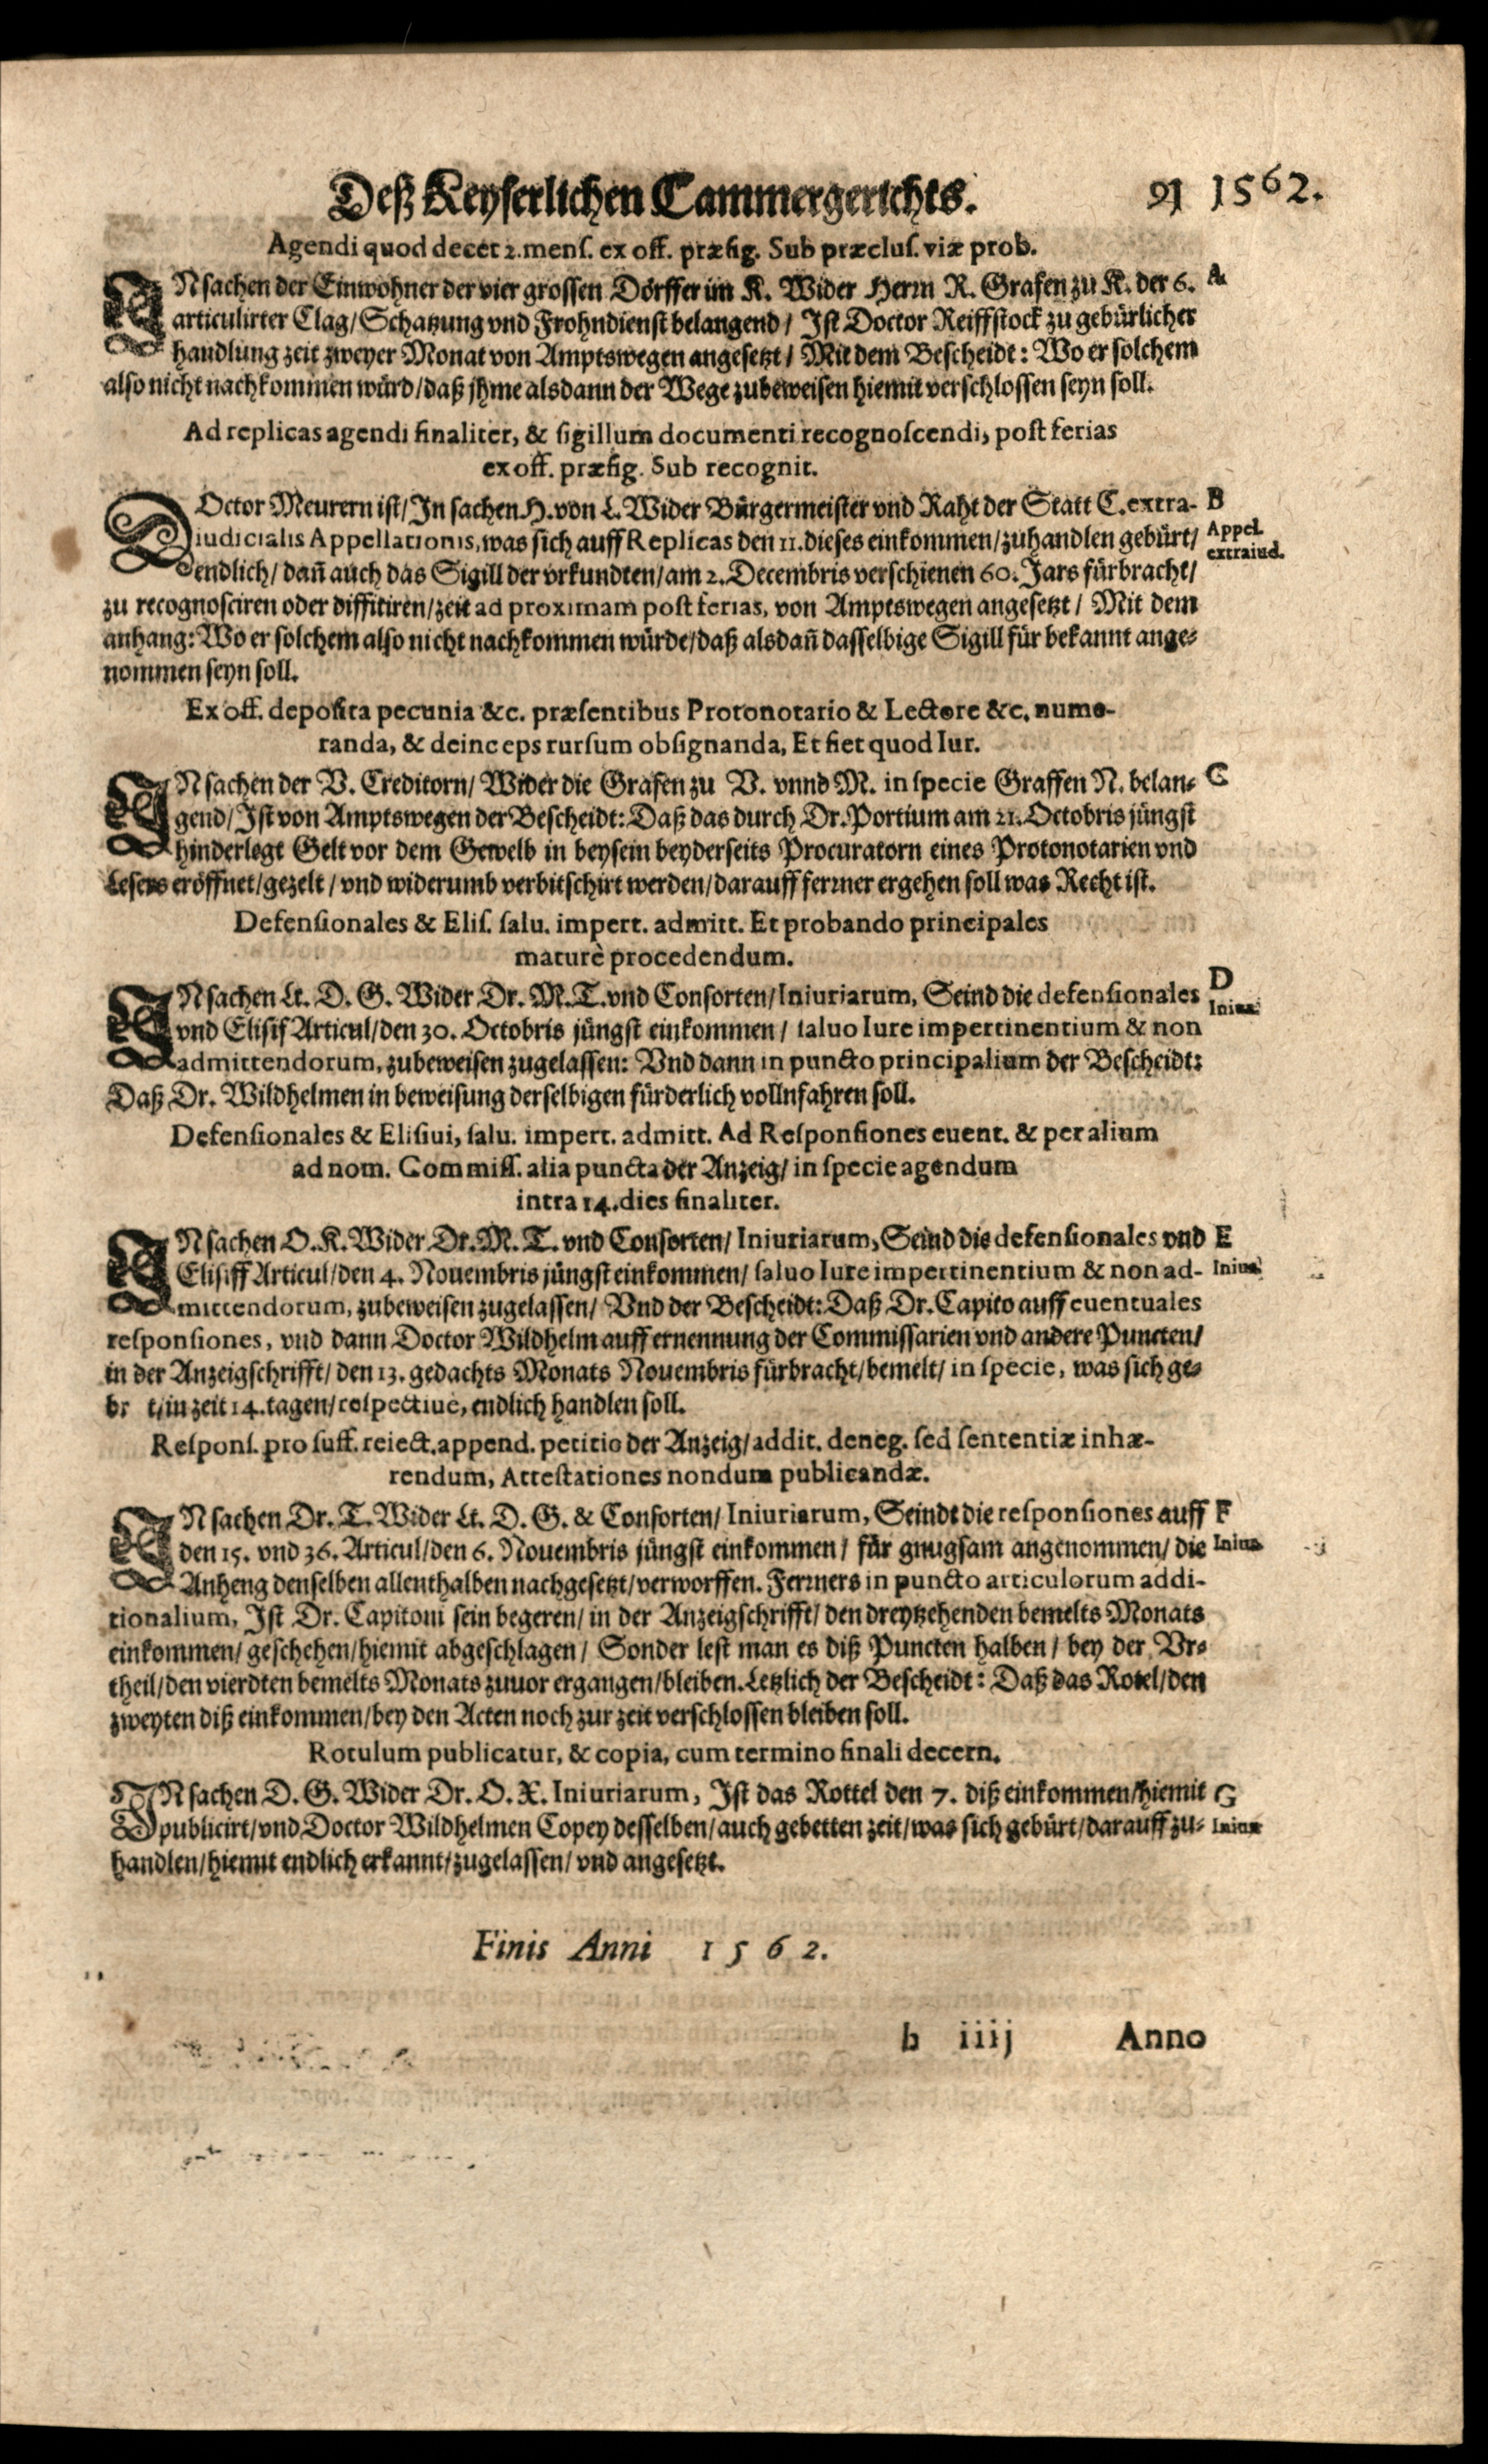 Deß Keyserlichen Cammergerichts. 91 1562.
Agendi quod decet 2. mens. ex off. præfig. Sub præclus. viæ prob.
INsachen der Einwohner der vier grossen Dörffer im K. Wider Herrn R. Grafen zu K. der 6. A
articulirter Clag/ Schatzung vnd Frohndienst belangend/ Ist Doctor Reiffstock zu gebürlicher
handlung zeit zweyer Monat von Amptswegen angesetzt/ Mit dem Bescheidt: Wo er solchem
also nicht nachkommen würd/ daß jhme alsdann der Wege zubeweisen hiemit verschlossen seyn soll.
Ad replicas agendi finaliter, & sigillum documenti recognoscendi, post ferias
ex off. præfig. Sub recognit.
DOctor Meurern ist/ In sachen H. von L. Wider Bürgermeister vnd Raht der Statt C. extra- B
iudicialis Appellationis, was sich auff Replicas den 11. dieses einkommen/ zuhandlen gebürt/ Appel.
extraiud.
endlich/ dañ auch das Sigill der vrkundten/ am 2. Decembris verschienen 60. Jars fürbracht/
zu recognosciren oder diffitiren/ zeit ad proximam post ferias, von Amptswegen angesetzt/ Mit dem
anhang: Wo er solchem also nicht nachkommen würde/ daß alsdañ dasselbige Sigill für bekannt ange-
nommen seyn soll.
Ex off. deposita pecunia &c. præsentibus Protonotario & Lectore &c. nume-
randa, & deinceps rursum obsignanda, Et fiet quod Iur.
INsachen der V. Creditorn/ Wider die Grafen zu V. vnnd M. in specie Graffen N. belan- C
gend/ Ist von Amptswegen der Bescheidt: Daß das durch Dr. Portium am 21. Octobris jüngst
hinderlegt Gelt vor dem Gewelb in beysein beyderseits Procuratorn eines Protonotarien vnd
Lesers eröffnet/ gezelt/ vnd widerumb verbitschirt werden/ darauff ferrner ergehen soll was Recht ist.
Defensionales & Elis. salu. impert. admitt. Et probando principales
maturè procedendum.
INsachen Lt. D. G. Wider Dr. M. T. vnd Consorten/ Iniuriarum, Seind die defensionales D
Iniur.
vnd Elisif Articul/ den 30. Octobris jüngst einkommen/ saluo Iure impertinentium & non
admittendorum, zubeweisen zugelassen: Vnd dann in puncto principalium der Bescheidt:
Daß Dr. Wildhelmen in beweisung derselbigen fürderlich vollnfahren soll.
Defensionales & Elisiui, salu. impert. admitt. Ad Responsiones euent. & per alium
ad nom. Commiss. alia puncta der Anzeig/ in specie agendum
intra 14. dies finaliter.
INsachen O. K. Wider Dr. M. T. vnd Consorten/ Iniuriarum, Seind die defensionales vnd E
Elisiff Articul/ den 4. Nouembris jüngst einkommen/ saluo Iure impertinentium & non ad- Iniur.
mittendorum, zubeweisen zugelassen/ Vnd der Bescheidt: Daß Dr. Capito auff euentuales
responsiones, vnd dann Doctor Wildhelm auff ernennung der Commissarien vnd andere Puncten/
in der Anzeigschrifft/ den 13. gedachts Monats Nouembris fürbracht/ bemelt/ in specie, was sich ge-
br t/ in zeit 14. tagen/ respectiuè, endlich handlen soll.
Respons. pro suff. reiect. append. petitio der Anzeig/ addit. deneg. sed sententiæ inhæ-
rendum, Attestationes nondum publicandæ.
INsachen Dr. T. Wider Lt. D. G. & Consorten/ Iniuriarum, Seindt die responsiones auff F
den 15. vnd 36. Articul/ den 6. Nouembris jüngst einkommen/ für gnugsam angenommen/ die Iniur.
Anheng denselben allenthalben nachgesetzt/ verworffen. Ferrners in puncto articulorum addi-
tionalium, Ist Dr. Capitoni sein begeren/ in der Anzeigschrifft/ den dreytzehenden bemelts Monats
einkommen/ geschehen/ hiemit abgeschlagen/ Sonder lest man es diß Puncten halben/ bey der Vr-
theil/ den vierdten bemelts Monats zuuor ergangen/ bleiben. Letzlich der Bescheidt: Daß das Rotel/ den
zweyten diß einkommen/ bey den Acten noch zur zeit verschlossen bleiben soll.
Rotulum publicatur, & copia, cum termino finali decern.
INsachen D. G. Wider Dr. O. X. Iniuriarum, Ist das Rottel den 7. diß einkommen/ hiemit G
publicirt/ vnd Doctor Wildhelmen Copey desselben/ auch gebetten zeit/ was sich gebürt/ darauff zu- Iniur
handlen/ hiemit endlich erkannt/ zugelassen/ vnd angesetzt.
Finis Anni 1562.
b iiij Anno